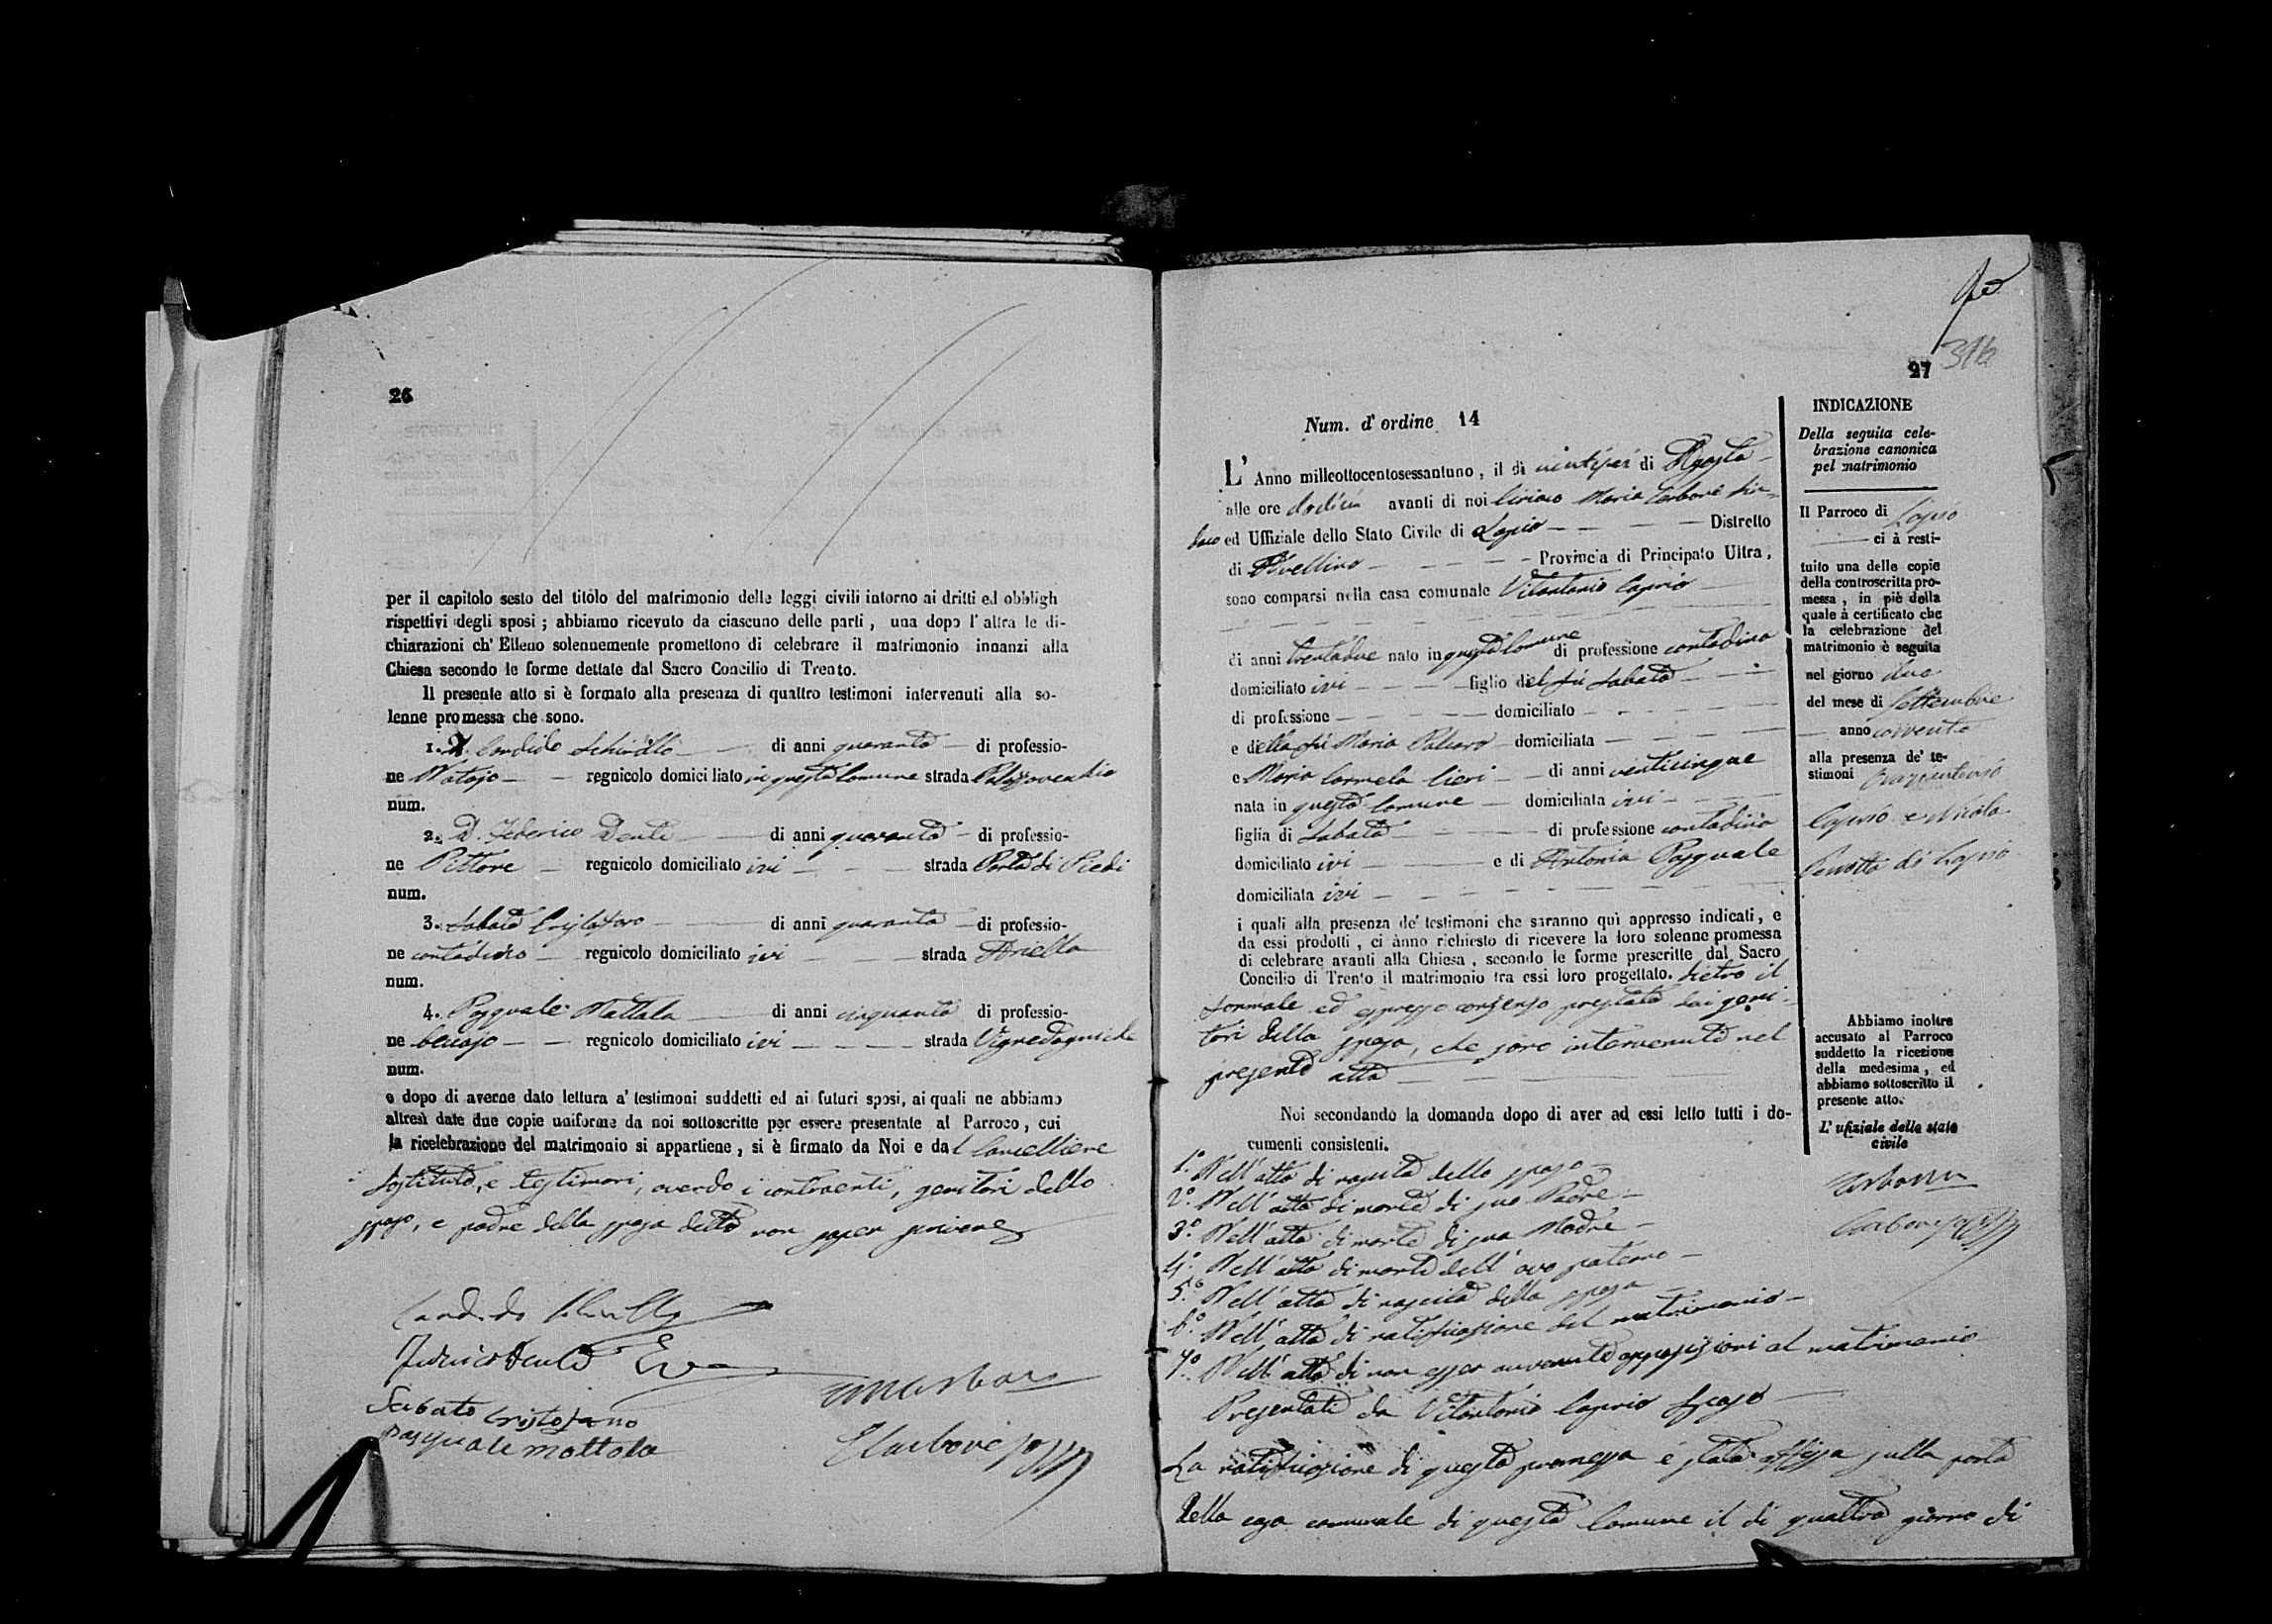 26
per il capitolo sesto del titolo del matrimonio delle leggi civili intorno ai dritti ed obbligh
rispettivi degli sposi; abbiamo ricevuto da ciascuno delle parti, una dopo l'altra le di-
chiarazioni ch' Elleno solennemente promettono di celebrare il matrimonio innanzi alla
Chiesa secondo le forme dettate dal Sacro Concilio di Trento.
Il presente atto si è formato alla presenza di quattro testimoni intervenuti alla so-
lenne promessa che sono.
1. D. Candido Schirillo di anni quaranta di professio-
ne Notajo regnicolo domiciliato in questo Comune strada Palazzovecchio
num.
2. D. Federico Denti di anni quaranta di professio-
ne Pittore regnicolo domiciliato ivi strada Porta di Piedi
num.
3. Sabato Cristofaro di anni quaranta di professio-
ne contadino regnicolo domiciliato ivi strada Ariella
num.
4. Pasquale Mattala di anni cinquanta di professio-
ne beccajo regnicolo domiciliato ivi strada
num.
e dopo di averne dato lettura a' testimoni suddetti ed ai futuri sposi, ai quali ne abbiamo
altresì date due copie uniforme da noi sottoscritte per essere presentate al Parroco, cui
la ricelebrazione del matrimonio si appartiene, si è firmato da Noi e dal Cancelliere
sostituto, e testimoni, avendo i contraenti, genitori dello
sposo, e padre della sposa detto non saper scrivere
Candido Schirillo
Federico Denti
Sabato Cristofano
Pasquale Mottola
Carbone
27
316
Num. d'ordine 14
L' Anno milleottocentosessantuno, il di ventisei di Agosto
alle ore dodici avanti di noi Ciriaco Maria Carbone Sin-
daco ed Uffiziale dello Stato Civile di Lapio Distretto
di Avellino Provincia di Principato Ultra,
sono comparsi nella casa comunale Vitantonio Caprio
di anni trentadue nato in questo Comune di professione contadino
domiciliato ivi figlio del fù Sabato
di professione domiciliato
e della fù Maria domiciliata
e Maria Carmela Cieri di anni venticinque
nata in questo Comune domiciliata ivi
figlia di Sabato di professione contadino
domiciliato ivi e di Antonia Pasquale
domiciliata ivi
i quali alla presenza de' testimoni che saranno quì appresso indicati, e
da essi prodotti, ci ànno richiesto di ricevere la loro solenne promessa
di celebrare avanti alla Chiesa, secondo le forme prescritte dal Sacro
Concilio di Trento il matrimonio tra essi loro progettato. dietro il
formale ed espresso consenso prestato dai geni-
tori della sposa, che sono intervenuti nel
presente atto
Noi secondando la domanda dopo di aver ad essi letto tutti i do-
cumenti consistenti.
1.° Nell' atto di nascita dello sposo
2.° Nell' atto di morte di suo Padre
3.° Nell' atto di morte di sua Madre
4.° Nell' atto di morte dell' avo paterno
5.° Nell' atto di nascita della sposa
6.° Nell' atto di notificazione del matrimonio
7.° Nell' atto di non esser avvenute opposizioni al matrimonio
Presentati da Vitantonio Caprio sposo
La notificazione di questa promessa è stata affissa sulla porta
della casa comunale di questo Comune il di quattro giorno di
INDICAZIONE
Della seguita cele-
brazione canonica
pel matrimonio
Il Parroco di Lapio
ci à resti-
tuito una delle copie
della controscritta pro-
messa, in piè della
quale à certificato che
la celebrazione del
matrimonio è seguita
nel giorno due
del mese di Settembre
anno corrente
alla presenza de' te-
stimoni
Caprio e Nicola
di Lapio
Abbiamo inoltre
accusato al Parroco
suddetto la ricezione
della medesima, ed
abbiamo sottoscritto il
presente atto.
L' ufiziale dello stato
civile
Carbone